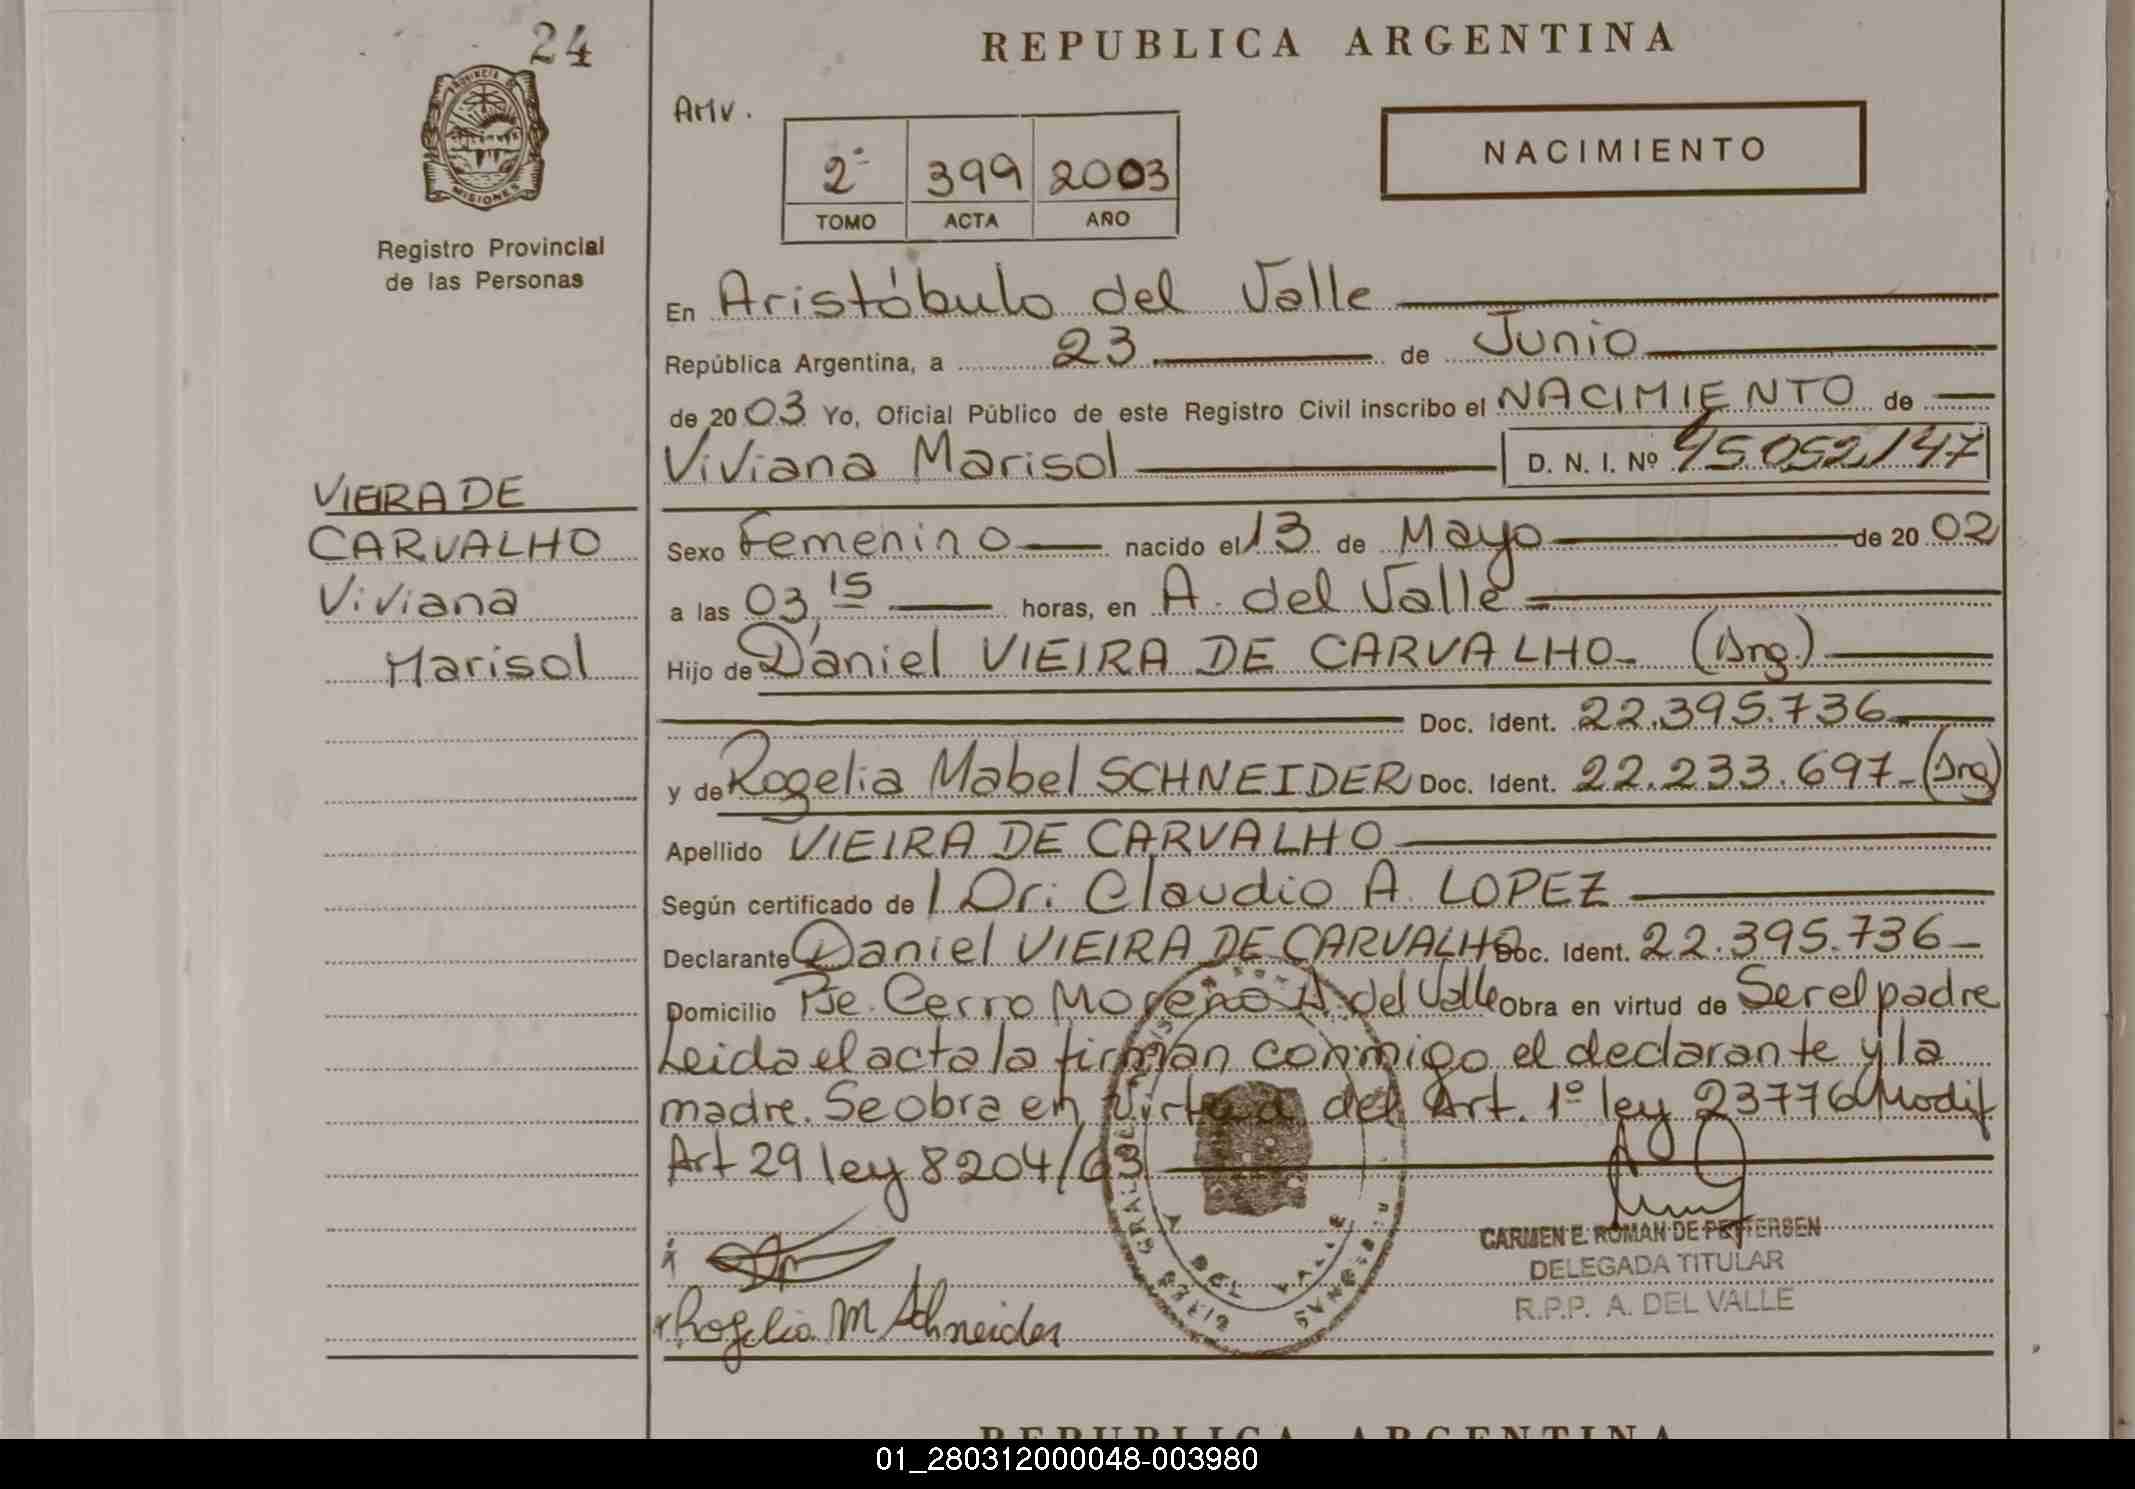 24
PROVINCIA DE
MISIONES
Registro Provincial
de las Personas
VIEIRA DE
CARVALHO
Viviana
Marisol
REPUBLICA ARGENTINA
2º 399 2003
TOMO ACTA AÑO
NACIMIENTO
En Aristóbulo del Valle
República Argentina, a 23 de Junio
de 2003 Yo, Oficial Público de este Registro Civil inscribo el NACIMIENTO de
Viviana Marisol D. N. I. Nº 45.052.147
Sexo Femenino nacido el 13 de Mayo de 20 02
a las 03,15 horas, en A. del Valle
Hijo de Daniel VIEIRA DE CARVALHO- (Arg.)
Doc. Ident. 22.395.736
y de Rogelia Mabel SCHNEIDER Doc. Ident. 22.233.697-(Arg)
Apellido VIEIRA DE CARVALHO
Según certificado de l Dr: Claudio A. LOPEZ
Declarante Daniel VIEIRA DE CARVALHO Doc. Ident. 22.395.736-
Domicilio Pje. Cerro Moreno A. del Valle Obra en virtud de Ser el padre
Leida el acta la firman conmigo el declarante y la
madre. Se obra en virtud del Art. 1º ley 23776 Modif
Art 29 ley 8204/63
Rogelia M Schneider
CARMEN E. ROMAN DE PETTERSEN
DELEGADA TITULAR
R.P.P. A. DEL VALLE
REPUBLICA ARGENTINA
01_280312000048-003980